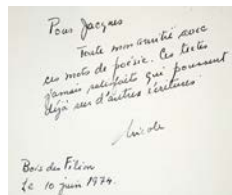 Pour Jacques
Toute mon amitié avec
ces mots de poésie. Ces textes
jamais satisfaits qui poussent
déjà sur d'autres écritures.
Nicole
Bois des Filion
Le 10 juin 1974.